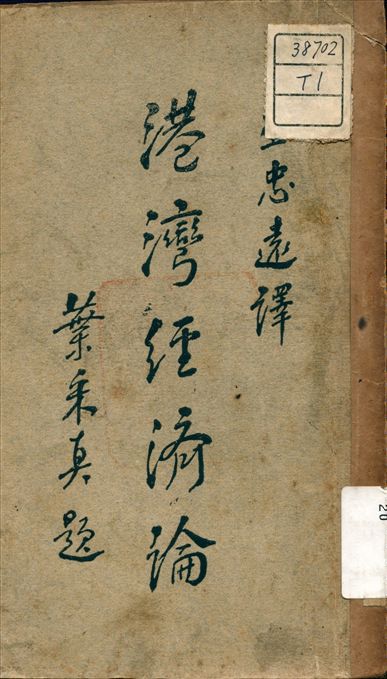 38702
T1
忠遠譯
港灣經濟論
葉采真題
20